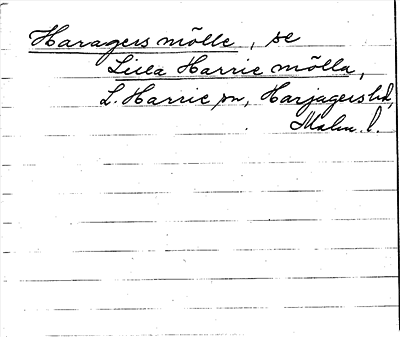 Haragers mölle, se
Lilla Harrie mölla,
L. Harrie sn, Harjagers hd,
Malm. l.